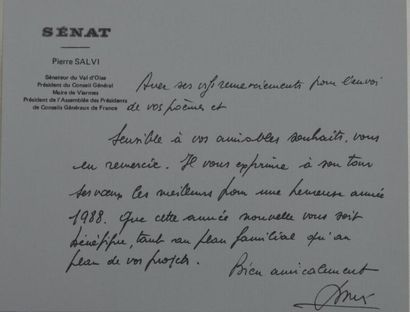 SÉNAT
Pierre SALVI
Sénateur du Val d'Oise
Président du Conseil Général
Maire de Viarmes
Président de l'Assemblée des Présidents
de Conseils Généraux de France
Avec ses vifs remerciements pour l'envoi
de vos poèmes et
Sensible à vos amiables souhaits, vous
en remercie. Il vous exprime à son tour
ses vœux les meilleurs pour une heureuse année
1988. Que cette année nouvelle vous soit
bénéfique, tant au plan familial qu'au
plan de vos projets.
Bien amicalement